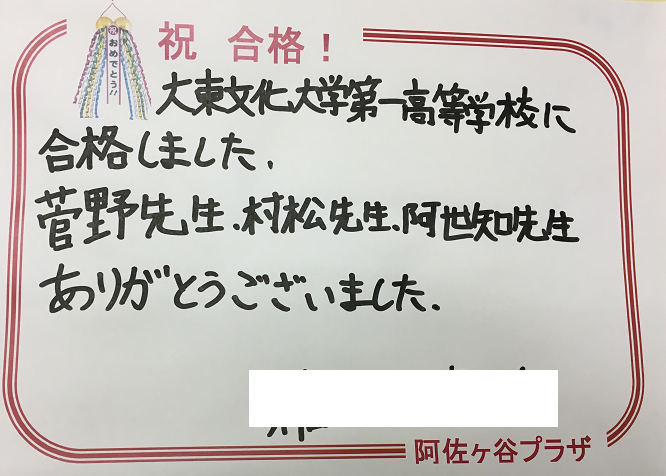 祝 合格！
祝
おめでとう!!
大東文化大学第一高等学校に
合格しました.
菅野先生、村松先生、阿世知先生
ありがとうございました.
阿佐ヶ谷プラザ